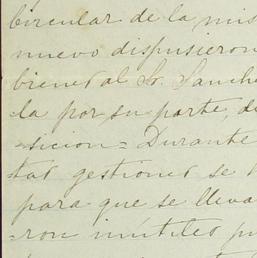 circular de la mis
nuevo dispusieron
bienes al Sr. Sanche
la por su parte, di
=sicion= Durante
tas gestiones se
para que se lleva
=ron inútiles pu